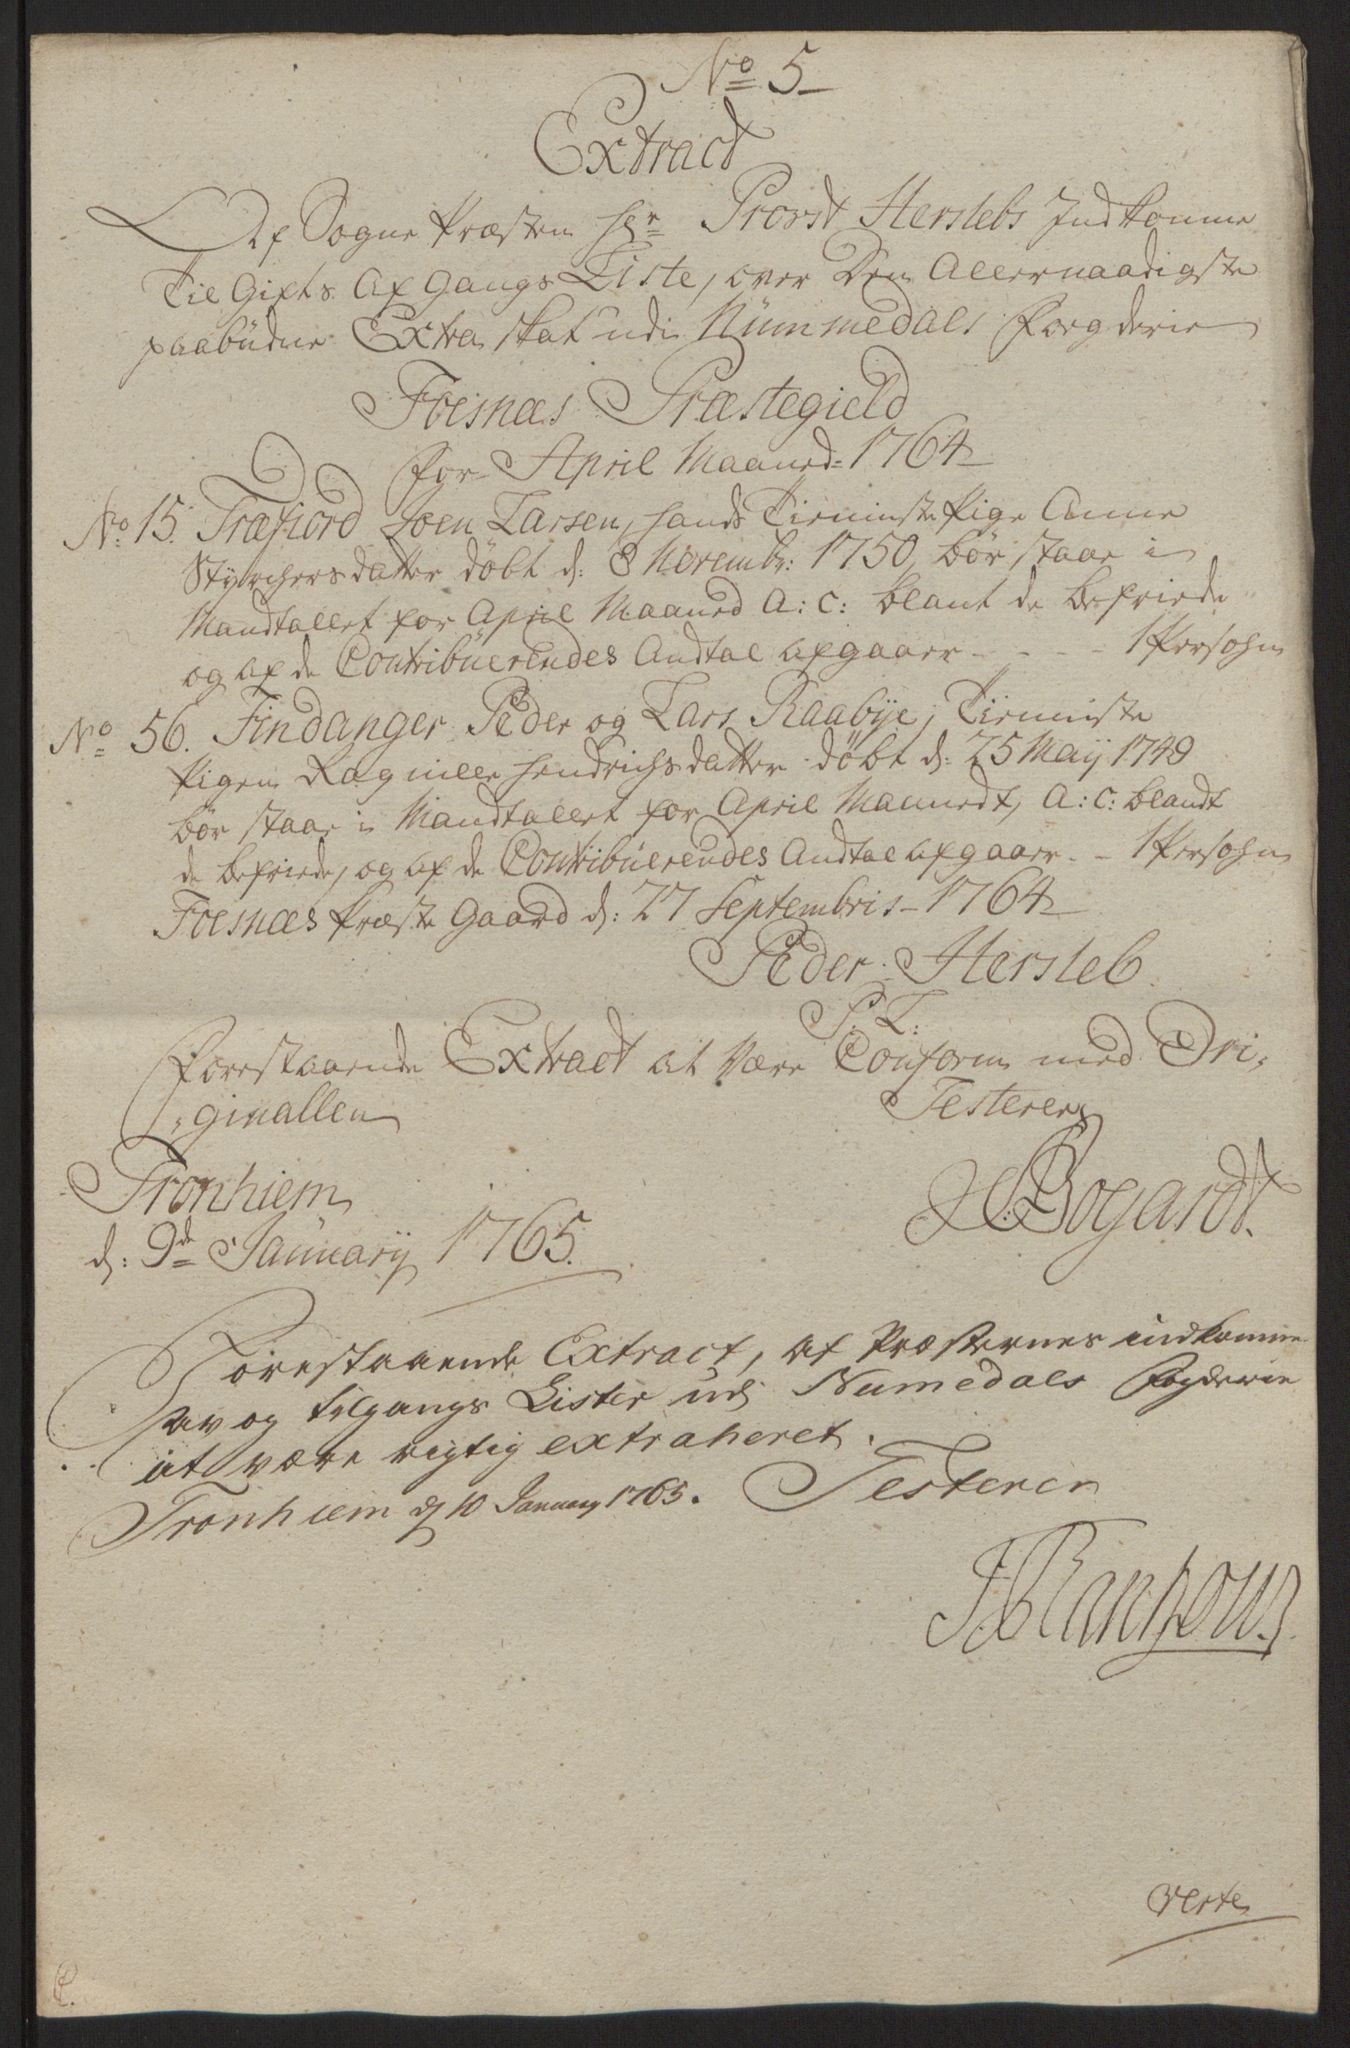 No 5
Extract
Af Sogne Præsten Hr Provst Herslebs Indkomne
Til Gifts Af Gangs Liste, over Den Allernaadigste
paabüdne Extra skat udi Nümmedals Foegderie
Foesnæs Præstegield
for April Maaned 1764
No 15. Træfiord Joen Larsen, hands Tieniste Pige Anne
Styrchersdatter döbt d: 8 Novembr: 1750, bör staae i
Mandtallet for April Maaned A: C: blant de befriede
og af de Contribüerendes Andtal afgaaer - - - - 1 Persohn
No 56. Findanger Peder og Lars Raabÿe, Tieniste
Pigen Ragnille Hendrichsdatter döbt d: 25 Maÿ 1749
bör staae i Mandtallet for April Maanedt, A: C: blandt
de befriede, og af de Contribüerendes Andtal afgaaer - - 1 Persohn
Foesnæs Præste Gaard d: 27 Septembris - 1764
Peder Hersleb
P: L:
Forestaaende Extract at være Conform med Ori,,
,,ginallen
Testerer
Tronhiem
d: 9de Januarÿ 1765.
Bogardt.
Forestaaende Extract, af Præsternes indkomne
av og tilgangs Lister udj Numedals Fogderie
at være rigtig extraheret.
Tronhiem d 10 January 1765. Testerer
Rantzou
verte